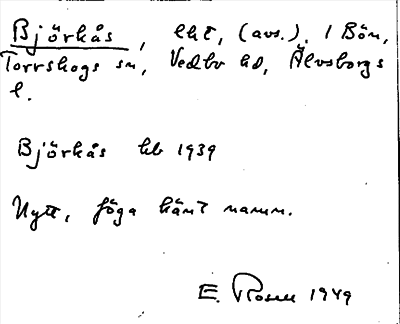 Björkås, lht, (avs.), i Bön,
Torrskogs sn, Vedbo hd, Älvsborgs
l.
Björkås hb 1939
Nytt, föga känt namn.
E. Rosell 1949